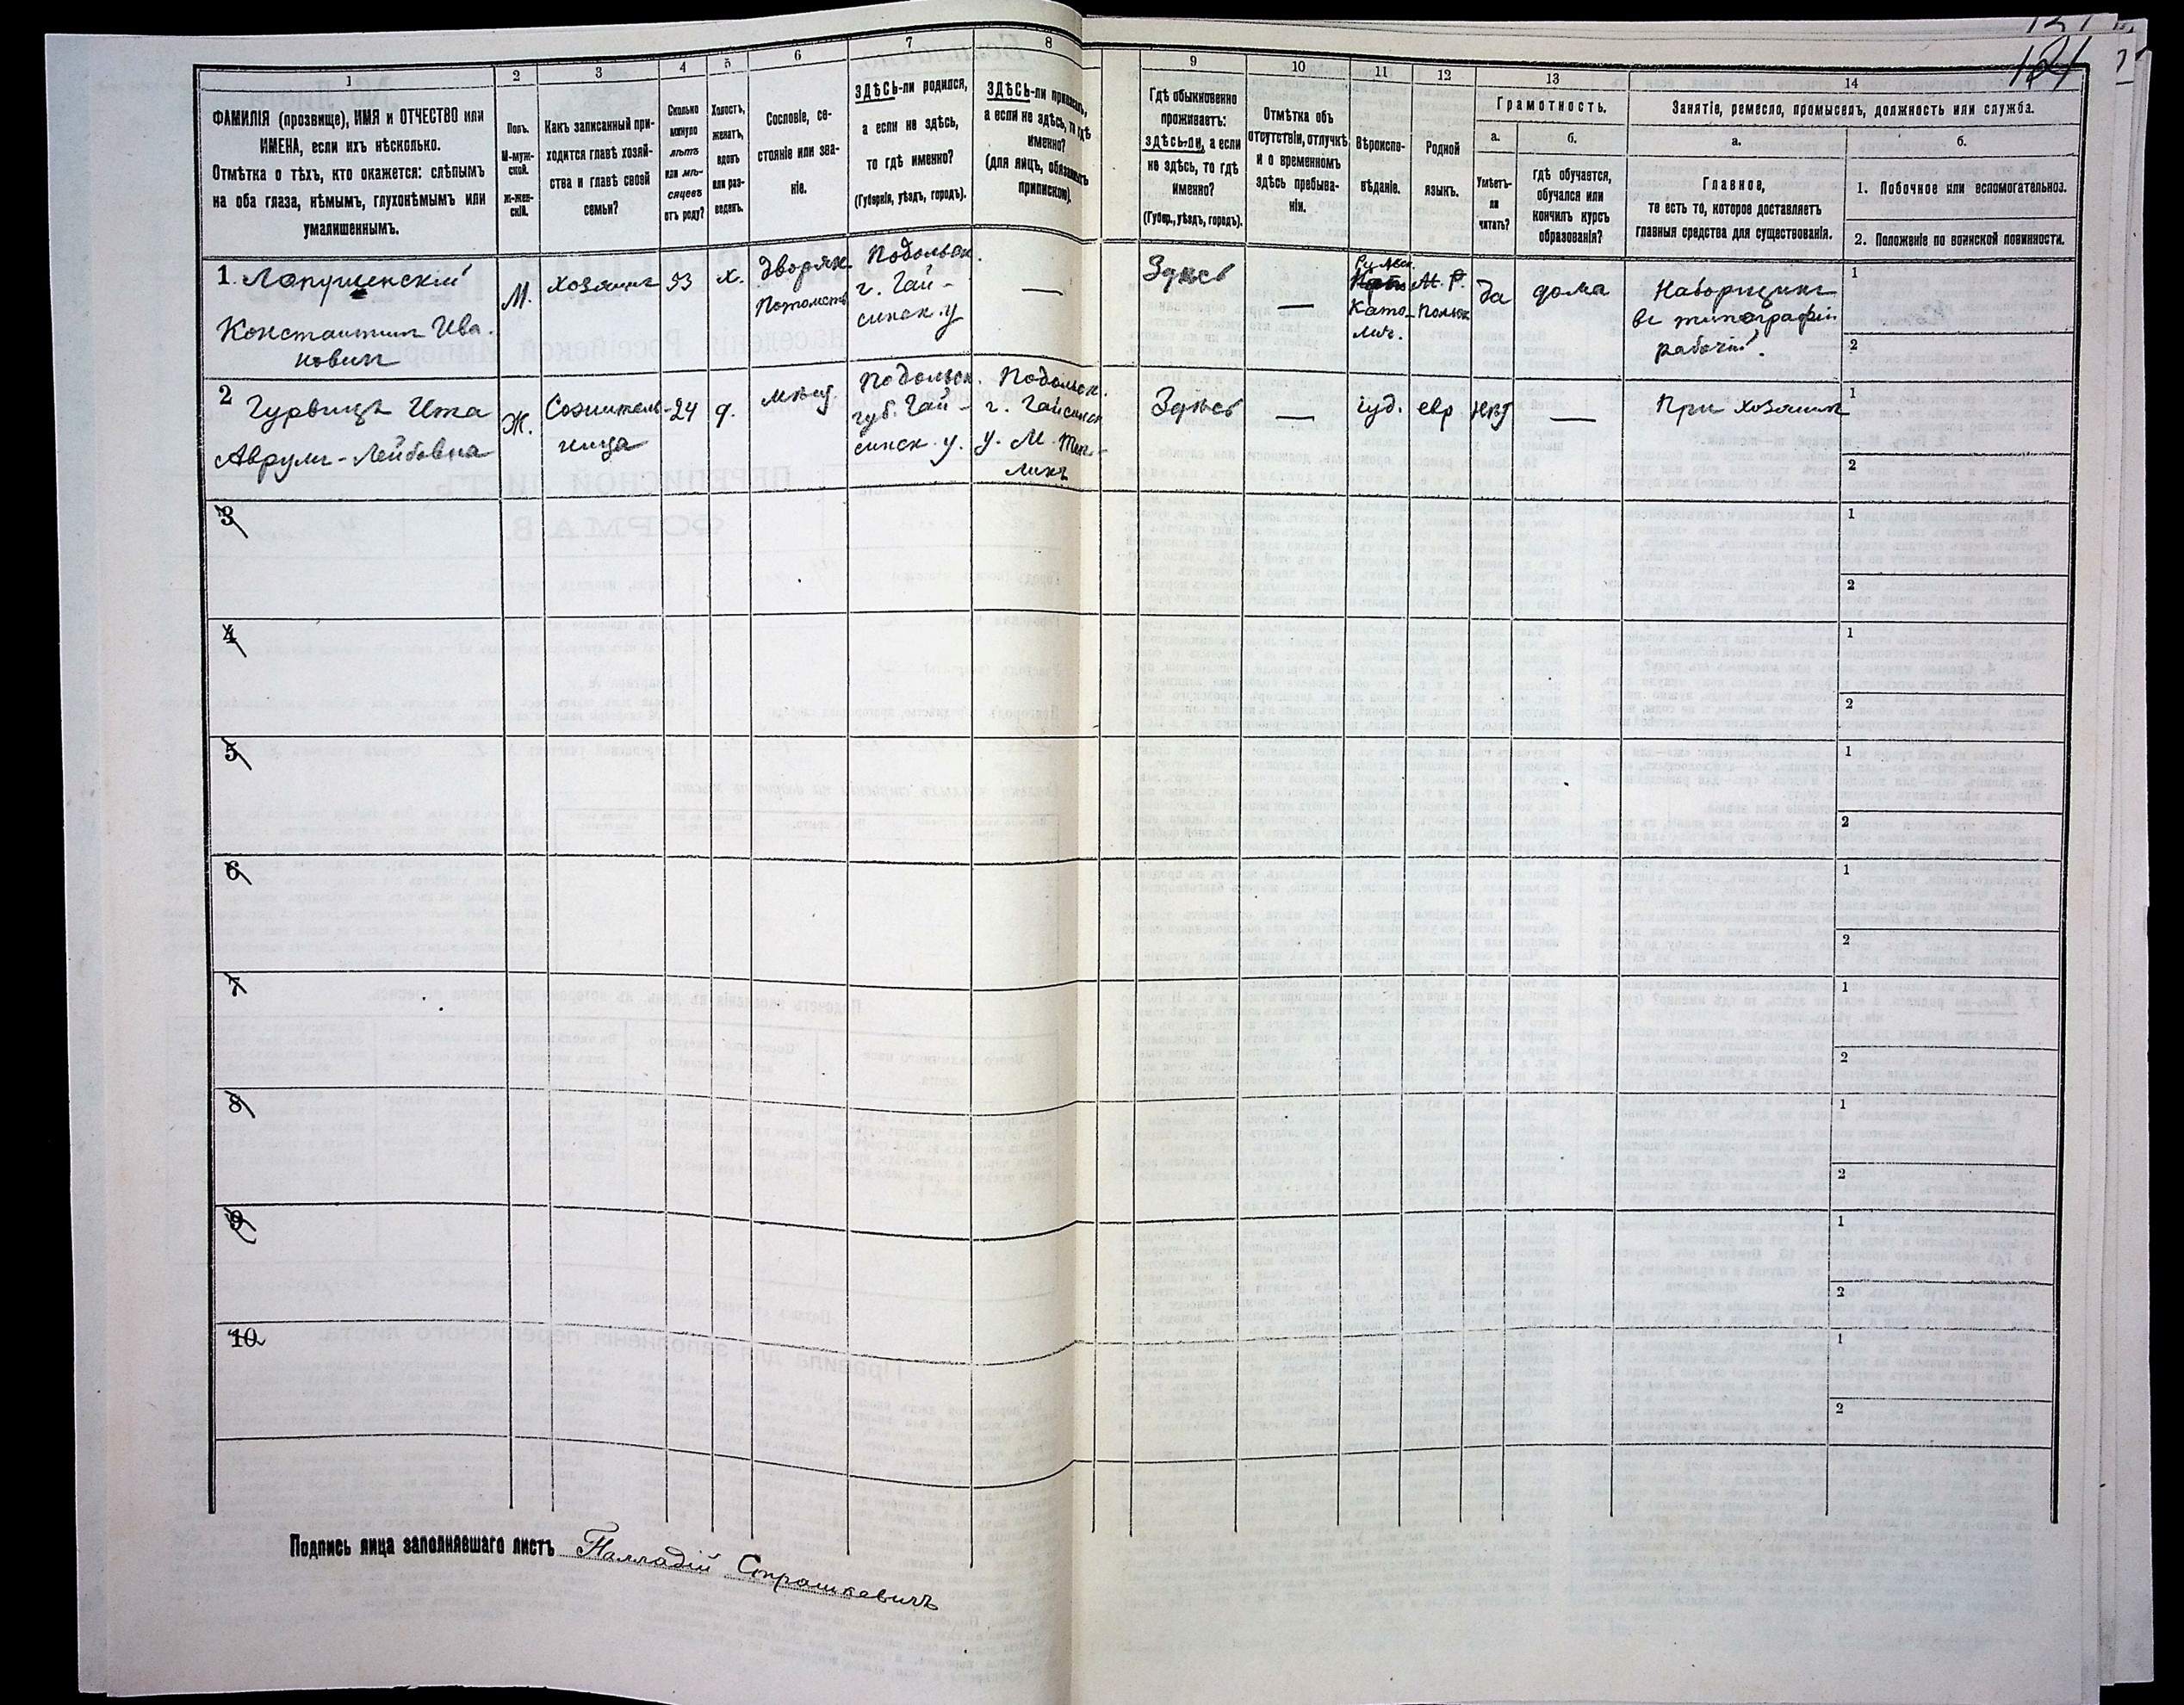 121
1 2 3 4 5 6 7 8 9 10 11 12 13 14
ФАМИЛІЯ (прозвище), ИМЯ и ОТЧЕСТВО или
ИМЕНА, если ихъ нѣсколько.
Отмѣтка о тѣхъ, кто окажется: слѣпымъ
на оба глаза, нѣмымъ, глухонѣмымъ или
умалишеннымъ.
Полъ.
М-муж-
ской.
Ж-жен-
скій.
Какъ записанный при-
ходится главѣ хозяй-
ства и главѣ своей
семьи?
Сколько
минуло
лѣтъ
или мѣ-
сяцевъ
отъ роду?
Холостъ,
женатъ,
вдовъ
или раз-
веденъ.
Сословіе, со-
стояніе или зва-
ніе.
ЗДѢСЬ-ли родился,
а если не здѣсь,
то гдѣ именно?
(Губернія, уѣздъ, городъ).
ЗДѢСЬ-ли приписанъ,
а если не здѣсь, то гдѣ
именно?
(для лицъ, обязанныхъ
припискою).
Гдѣ обыкновенно
проживаетъ:
ЗДѢСЬ-ли, а если
не здѣсь, то гдѣ
именно?
(Губер., уѣздъ, городъ).
Отмѣтка объ
отсутствіи, отлучкѣ
и о временномъ
здѣсь пребыва-
ніи.
Вѣроиспо-
вѣданіе.
Родной
языкъ.
Грамотность.
а.
Умѣетъ-
ли
читать?
б.
гдѣ обучается,
обучался или
кончилъ курсъ
образованія?
Занятіе, ремесло, промыселъ, должность или служба.
а.
Главное,
то есть то, которое доставляетъ
главныя средства для существованія.
б.
1. Побочное или вспомогательное.
2. Положеніе по воинской повинности.
1. Лапушенскій
Константинъ Ива-
новичъ
М.
хозяинъ
33
х.
дворян.
Потомств.
Подольск.
г. Гай-
синск. у
—
Здѣсь
—
Римск.
Като-
лич.
Польск
Да
дома
Наборщикъ
въ типографіи
рабочій.
1
2
2 Гурвицъ Ита
Аврумъ-Лейбовна
Ж.
Сожитель-
ница
24
д.
мѣщ.
Подольск.
губ. Гай-
синск. у.
Подольск.
г. Гайсинск
у. М. Теп-
ликъ
Здѣсь
—
іуд.
евр
нѣт
—
При хозяинѣ
1
2
3
1
2
4
1
2
5
1
2
6
1
2
7
1
2
8
1
2
9
1
2
10
1
2
Подпись лица заполнявшаго листъ Палладій Страшкевичъ